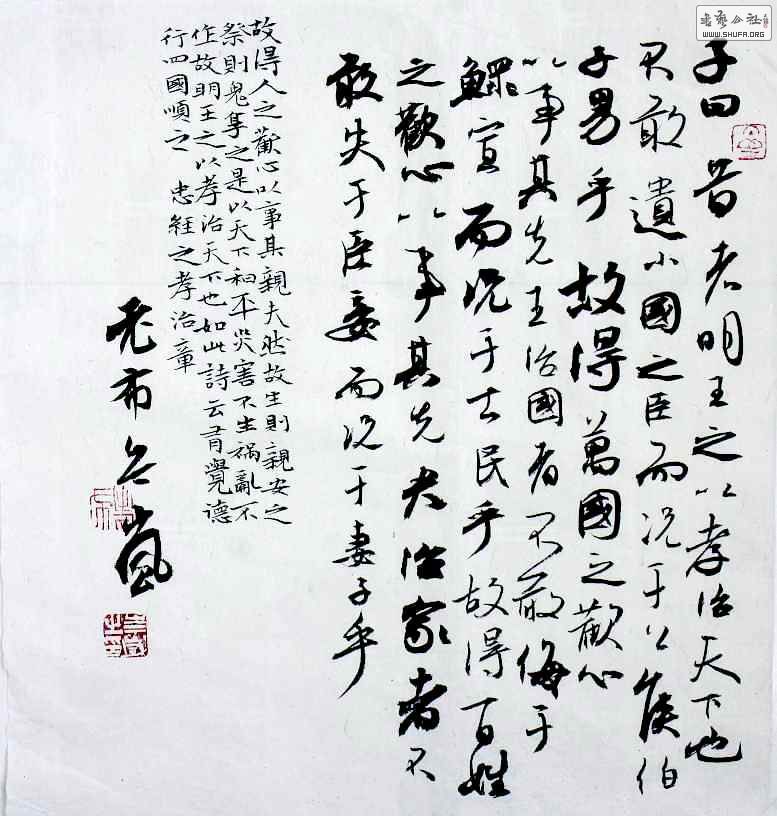 书艺公社
WWW.SHUFA.ORG
子曰昔者明王之以孝治天下也
不敢遺小國之臣而況于公侯伯
子男乎故得萬國之歡心
以事其先王治國者不敢侮于
鰥寡而況于士民乎故得百姓
之歡心以事其先夫治家者不
敢失于臣妾而況于妻子乎
故得人之歡心以事其親夫然故生則親安之
祭則鬼享之是以天下和平災害不生禍亂不
作故明王之以孝治天下也如此詩云有覺德
行四國順之 忠經之孝治章
老布 嵐